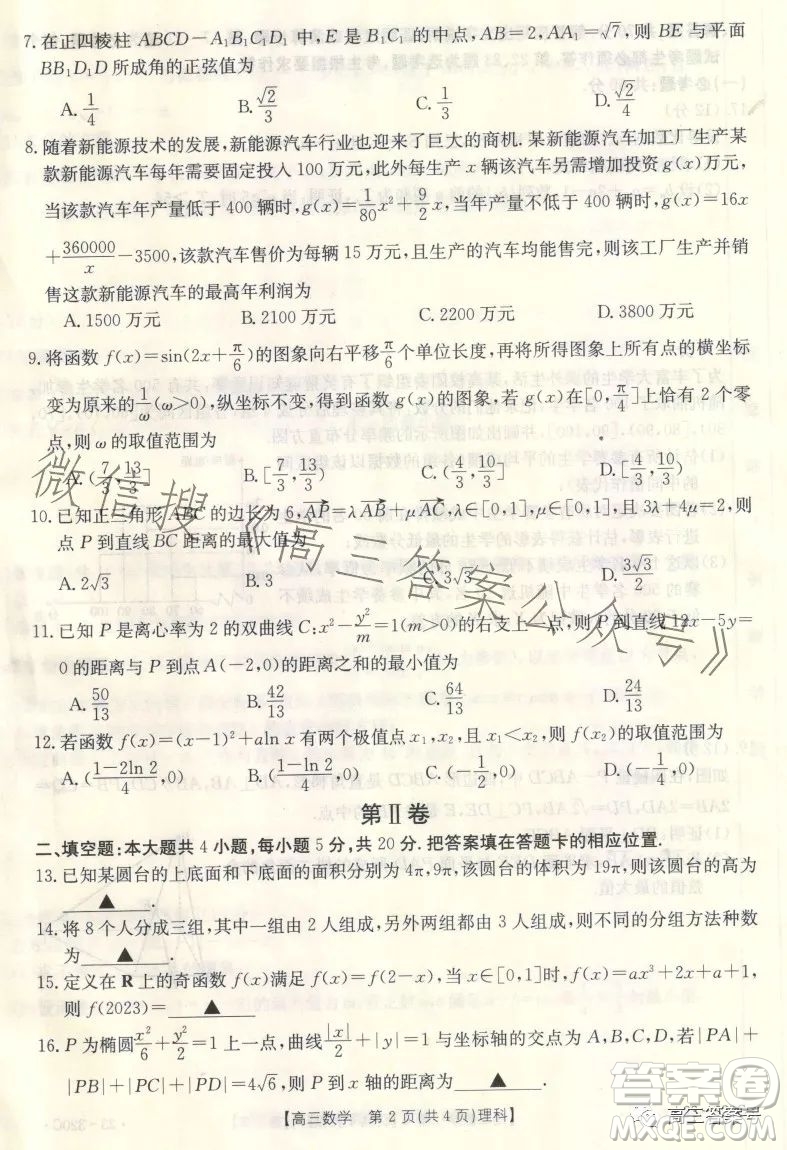 7. 在正四棱柱 ABCD－A₁B₁C₁D₁ 中，E 是 B₁C₁ 的中点，AB=2，AA₁=√7，则 BE 与平面
BB₁D₁D 所成角的正弦值为
A. 1/4 B. √2/3 C. 1/3 D. √2/4
8. 随着新能源技术的发展，新能源汽车行业也迎来了巨大的商机. 某新能源汽车加工厂生产某
款新能源汽车每年需要固定投入 100 万元，此外每生产 x 辆该汽车另需增加投资 g(x)万元，
当该款汽车年产量低于 400 辆时，g(x)=1/80 x²+9/2 x，当年产量不低于 400 辆时，g(x)=16x
+360000/x－3500，该款汽车售价为每辆 15 万元，且生产的汽车均能售完，则该工厂生产并销
售这款新能源汽车的最高年利润为
A. 1500 万元 B. 2100 万元 C. 2200 万元 D. 3800 万元
9. 将函数 f(x)=sin(2x+π/6) 的图象向右平移 π/6 个单位长度，再将所得图象上所有点的横坐标
变为原来的 1/ω (ω>0)，纵坐标不变，得到函数 g(x) 的图象，若 g(x) 在[0,π/4]上恰有 2 个零
点，则 ω 的取值范围为
A. (7/3,13/3] B. [7/3,13/3) C. (4/3,10/3] D. [4/3,10/3)
10. 已知正三角形 ABC 的边长为 6，AP=λAB+μAC，λ∈[0,1]，μ∈[0,1]，且 3λ+4μ=2，则
点 P 到直线 BC 距离的最大值为
A. 2√3 B. 3 C. 3√3 D. 3√3/2
11. 已知 P 是离心率为 2 的双曲线 C: x²－y²/m=1(m>0)的右支上一点，则 P 到直线 12x－5y=
0 的距离与 P 到点 A(－2,0)的距离之和的最小值为
A. 50/13 B. 42/13 C. 64/13 D. 24/13
12. 若函数 f(x)=(x－1)²+aln x 有两个极值点 x₁,x₂，且 x₁<x₂，则 f(x₂)的取值范围为
A. ((1－2ln 2)/4,0) B. ((1－ln 2)/2,0) C. (－1/2,0) D. (－1/4,0)
第Ⅱ卷
二、填空题：本大题共 4 小题，每小题 5 分，共 20 分. 把答案填在答题卡的相应位置.
13. 已知某圆台的上底面和下底面的面积分别为 4π，9π，该圆台的体积为 19π，则该圆台的高为
▲ .
14. 将 8 个人分成三组，其中一组由 2 人组成，另外两组都由 3 人组成，则不同的分组方法种数
为 ▲ .
15. 定义在 R 上的奇函数 f(x)满足 f(x)=f(2－x)，当 x∈[0,1]时，f(x)=ax³+2x+a+1，
则 f(2023)= ▲ .
16. P 为椭圆 x²/6+y²/2=1 上一点，曲线 |x|/2+|y|=1 与坐标轴的交点为 A,B,C,D，若|PA|+
|PB|+|PC|+|PD|=4√6，则 P 到 x 轴的距离为 ▲ .
【高三数学 第 2 页(共 4 页)理科】
微信搜《高三答案公众号》
答案圈
高三答案号